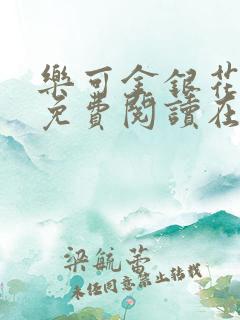 樂可金銀花
免費閱讀在
梁毓蕾
未經同意禁止轉載